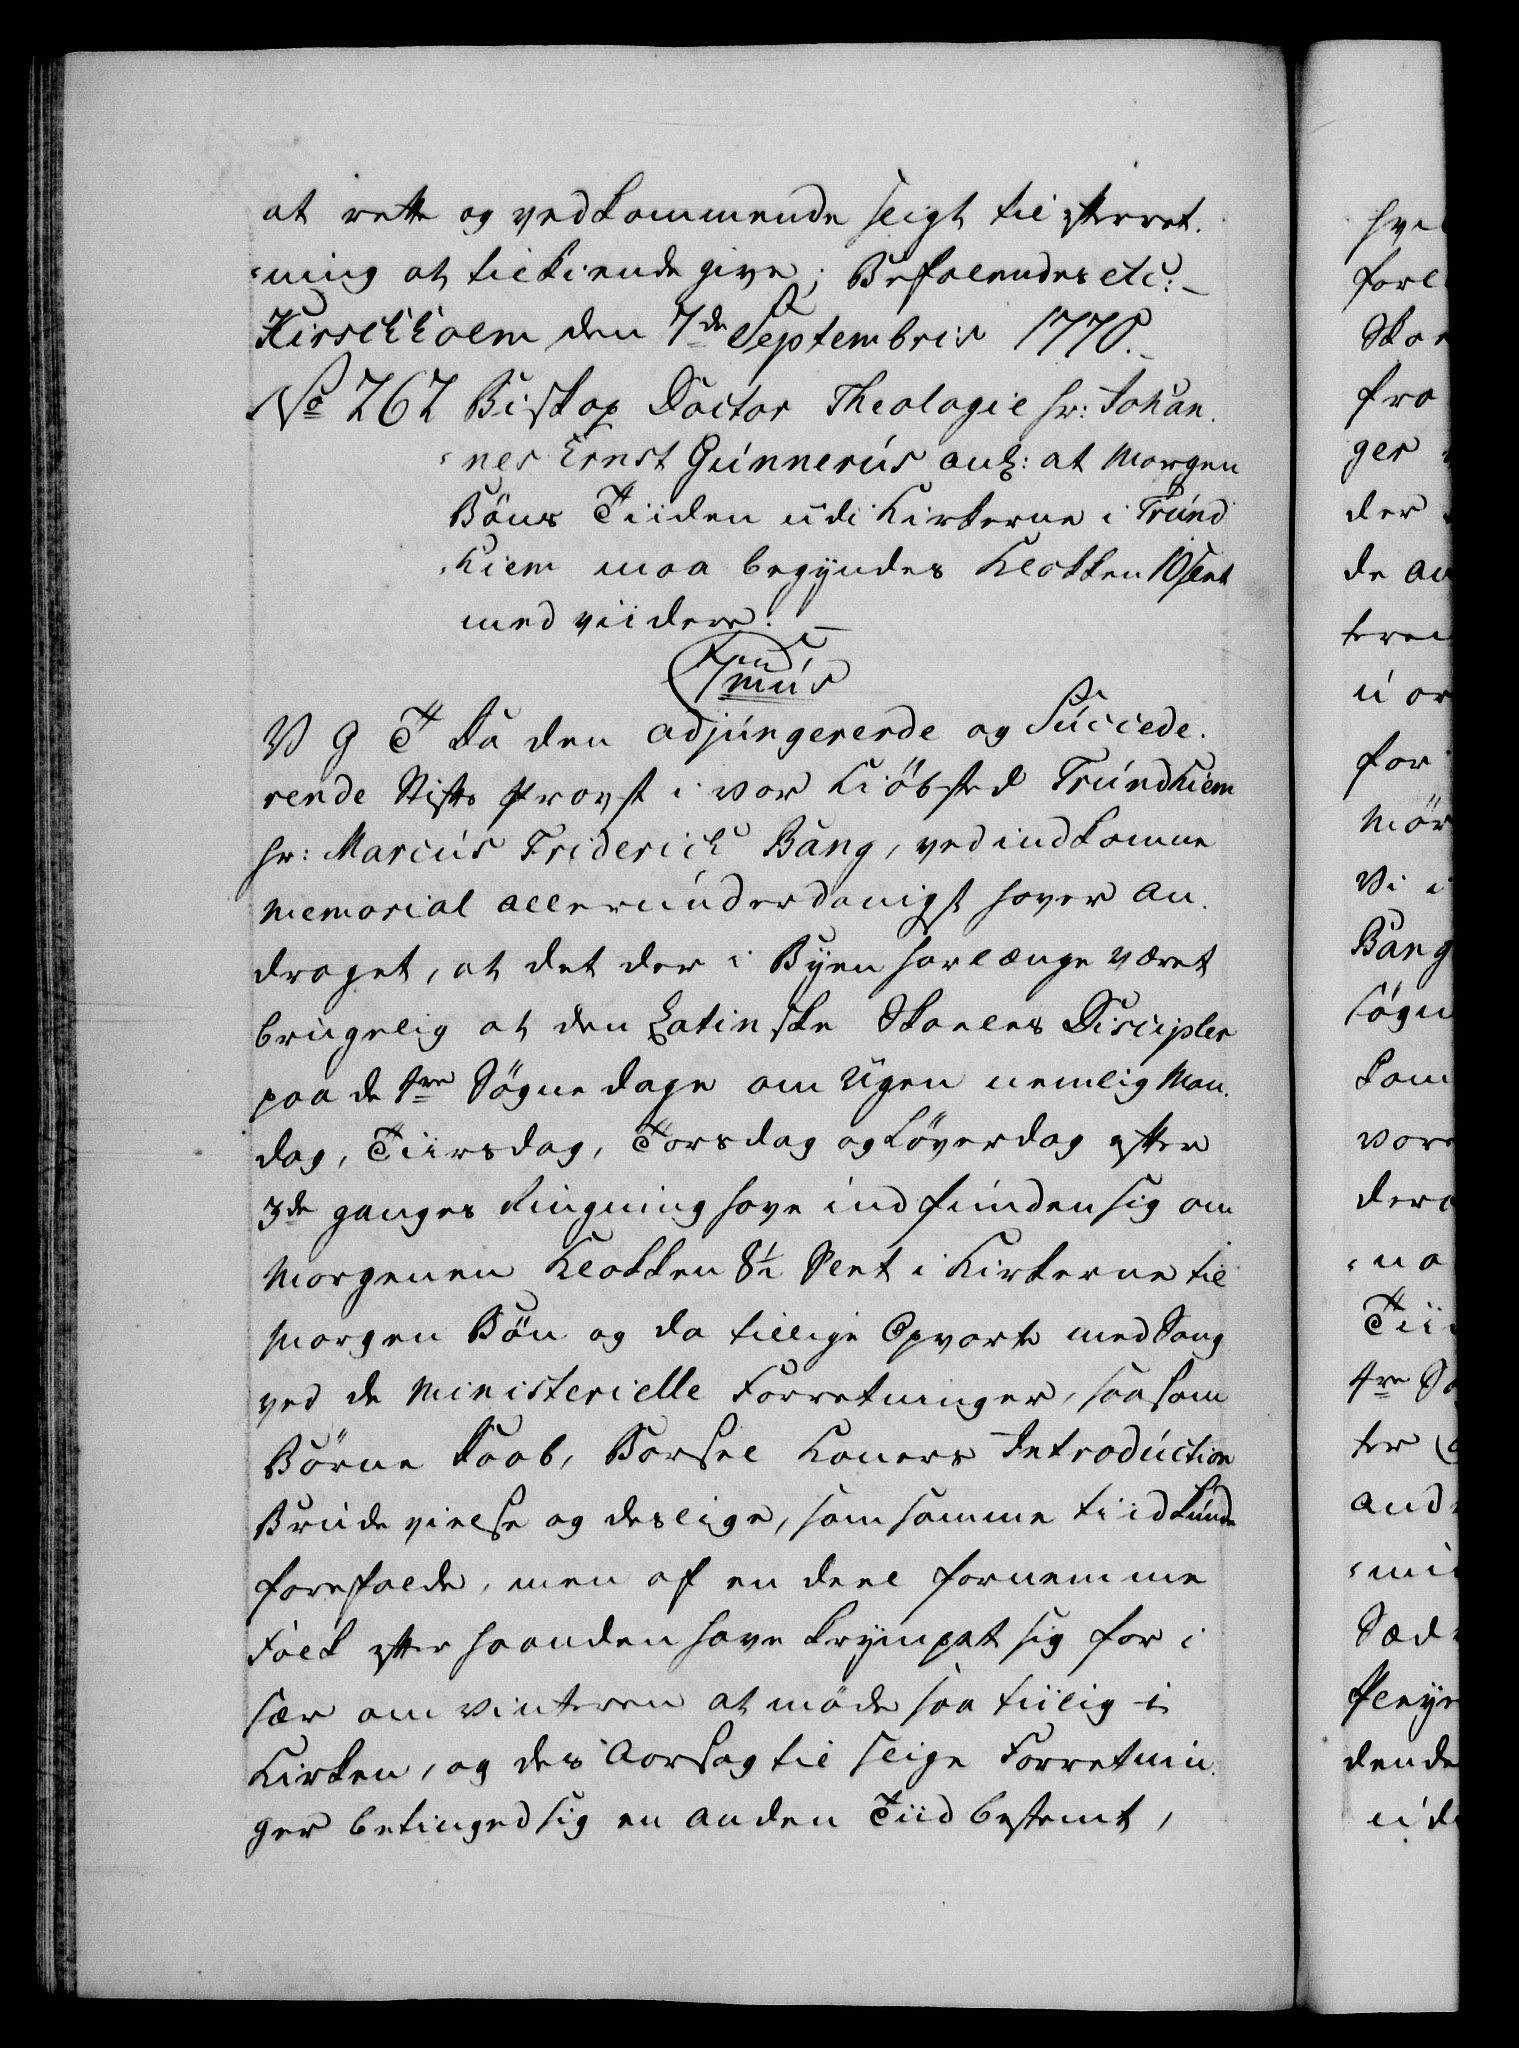 at rette og vedkommende sligt til efterret.
ning at tilkiende give; Befalendes etc:
Hirschholm den 7de Septembris 1770.
No 262 Biskop Doctor Theologie hr: Johan.
nes Ernst Gunnerus anl: at Morgen
Böns Tiiden udi Kirkerne i Trund
hiem maa begyndes Klokken 10 slet
med viidere.
V G T Da den adjungerende og Succede.
rende Stifts Provst i vor Kiöbsted Trundhiem
hr: Marcus Friderich Bang, ved indkomne
Memorial allerunderdanigst haver an.
draget, at det der i Byen har længe været
brugelig at den Latinske Skoeles Discipler
paa de 4re Sögne dage om Ugen nemlig Man.
dag, Tiirsdag, Torsdag og Löverdag efter
3de ganges Ringning have indfunden sig om
Morgenen Klokken 8½ Slet i Kirkerne til
Morgen Bön og da tillige Opvarte med Sang
ved de Ministerielle Forretninger, saasom
Börne Daab, Barsel Koners Introduction
Brude vielse og deslige, som samme tiid kunde
forefalde, men af en deel fornemme
Folk efter haanden have krympet sig for i
sær om vinteren at möde saa tiilig i
Kirken, og des Aarsag til slige Forretnin.
ger betinged sig en anden Tiid bestemt,